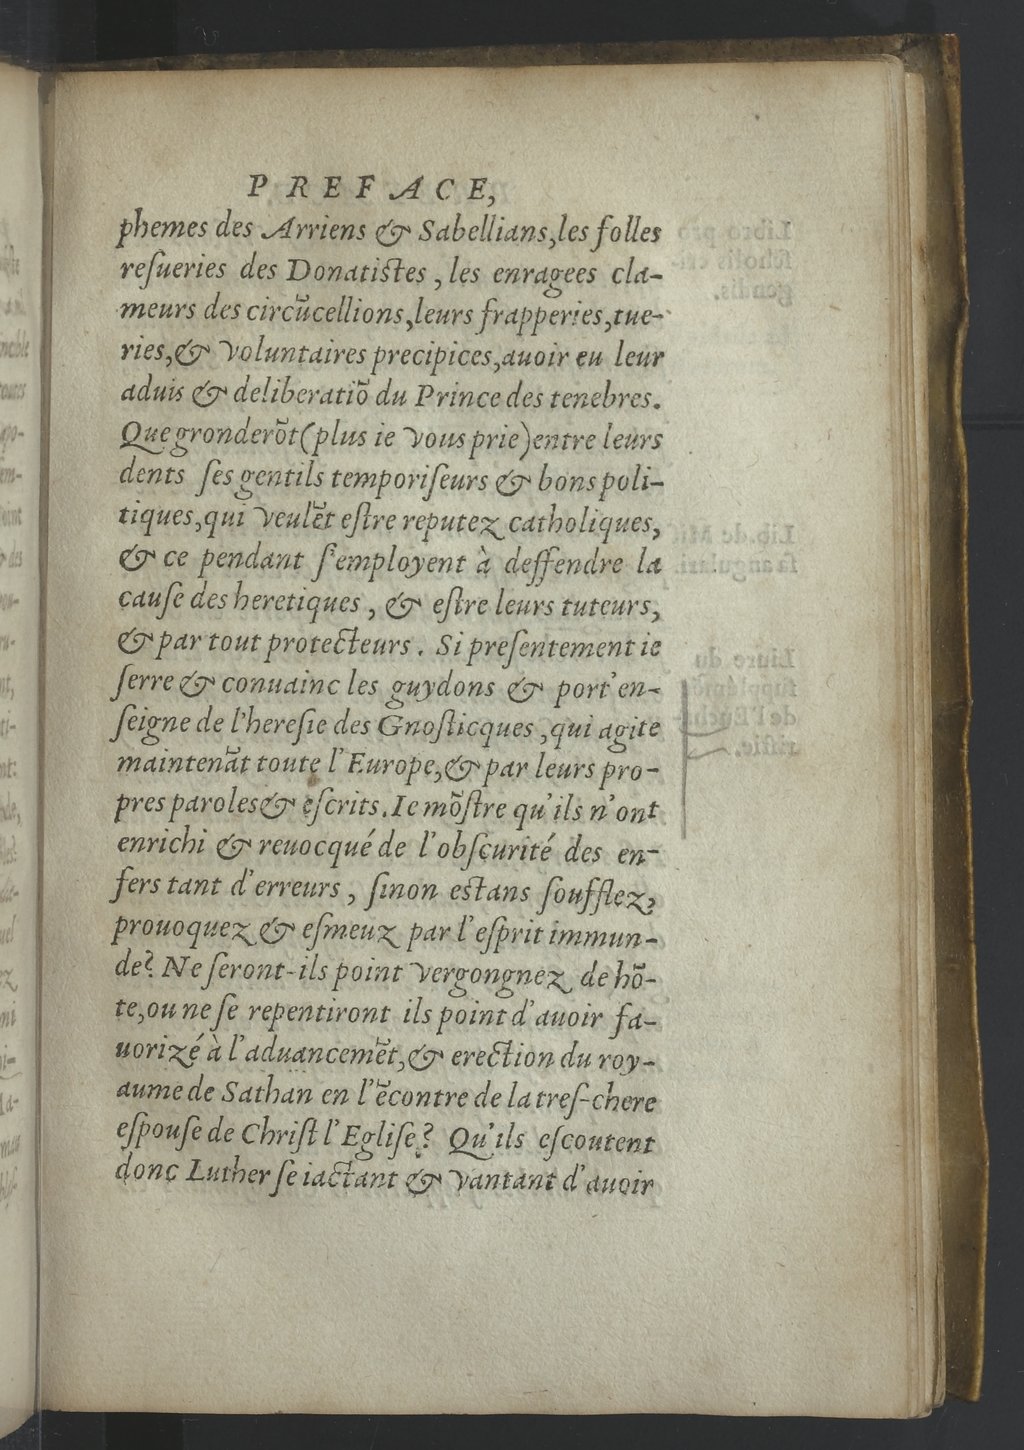 PREFACE,
phemes des Arriens & Sabellians, les folles
reſueries des Donatiſtes, les enragees cla-
meurs des circũcellions, leurs frapperies, tue-
ries, & voluntaires precipices, auoir eu leur
aduis & deliberatiõ du Prince des tenebres.
Que gronderõt (plus ie vous prie) entre leurs
dents ſes gentils temporiſeurs & bons poli-
tiques, qui veulẽt eſtre reputez catholiques,
& ce pendant ſ'employent à deffendre la
cauſe des heretiques, & eſtre leurs tuteurs,
& par tout protecteurs. Si preſentement ie
ſerre & conuainc les guydons & port'en-
ſeigne de l'hereſie des Gnoſticques, qui agite
maintenãt toute l'Europe, & par leurs pro-
pres paroles & eſcrits. Ie mõſtre qu'ils n'ont
enrichi & reuocqué de l'obſcurité des en-
fers tant d'erreurs, ſinon eſtans ſoufflez,
prouoquez & eſmeuz par l'eſprit immun-
de? Ne ſeront-ils point vergongnez de hõ-
te, ou ne ſe repentiront ils point d'auoir fa-
uorizé à l'aduancemẽt, & erection du roy-
aume de Sathan en l'ẽcontre de la treſ-chere
eſpouſe de Chriſt l'Egliſe? Qu'ils eſcoutent
donc Luther ſe iactant & vantant d'auoir